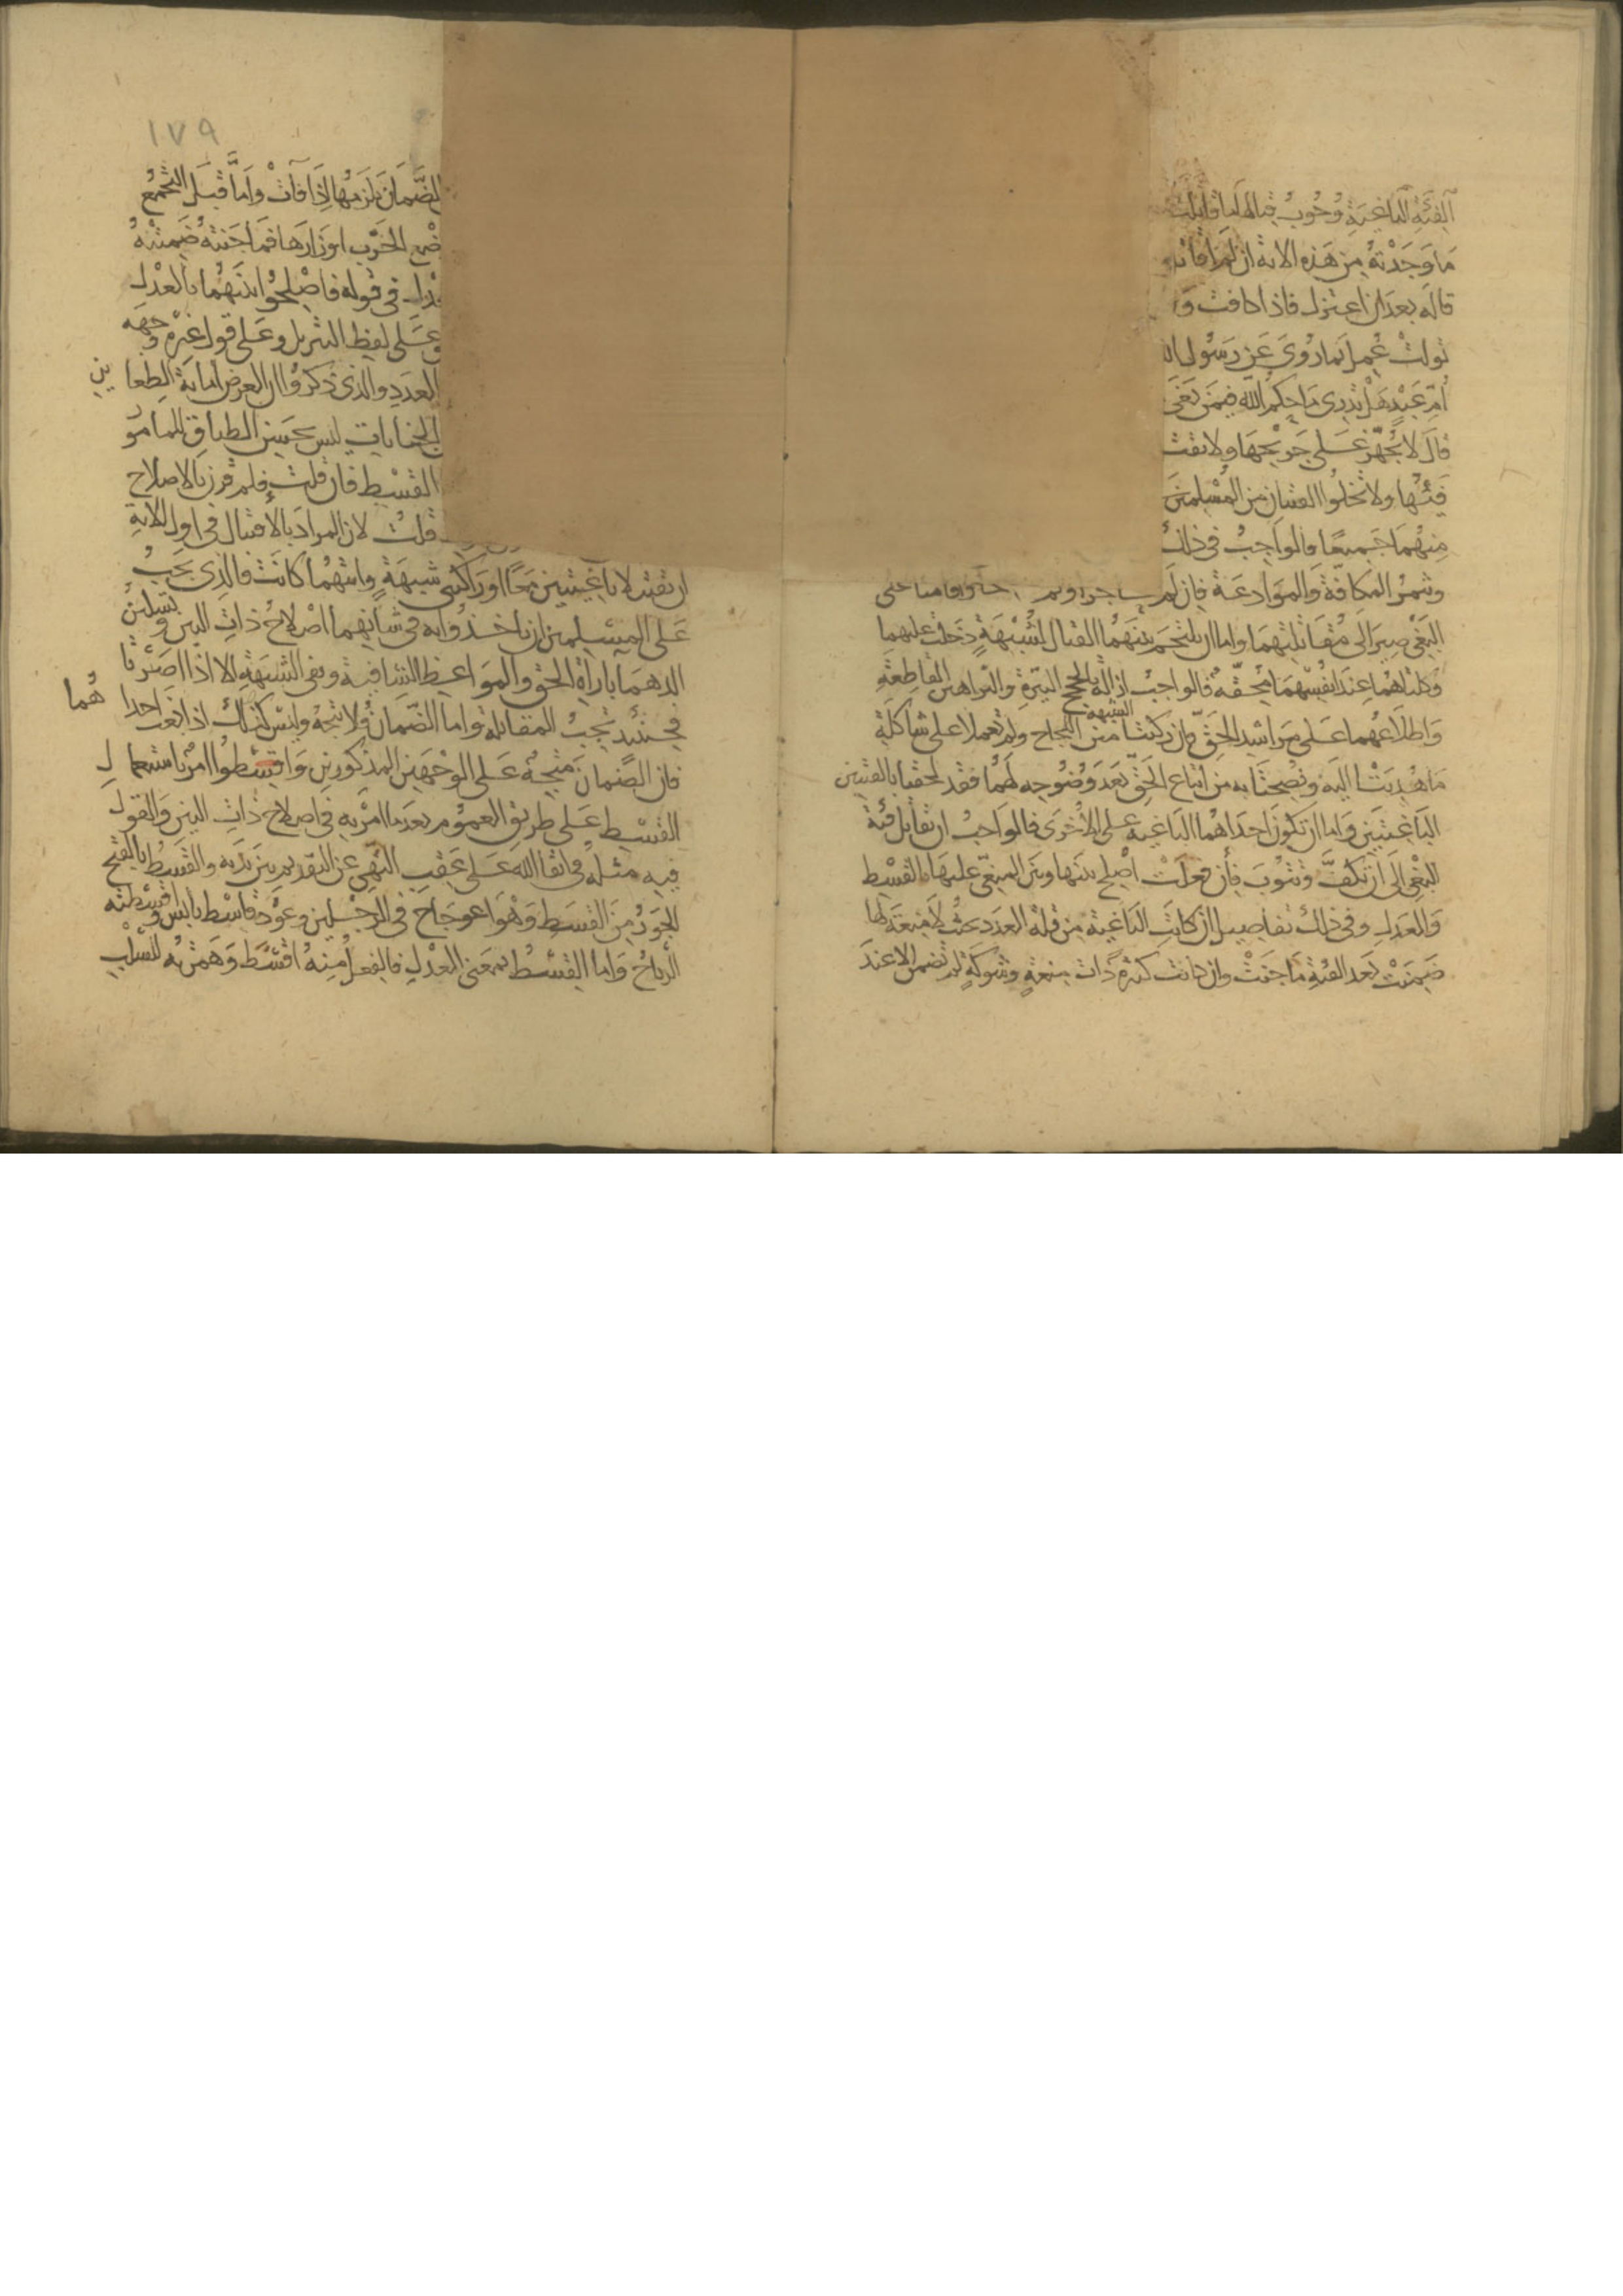 الفئة الباغية وجوب قتالها ما قاتلت
ما وجدته من هذه الاية ان لم اقاتل
قاله بعد ان اعتزل فاذا كافت و
تولت عمل بما روي عن رسول ا
ام عبد هل تدري ما حكم الله فيمن بغى
قال لا يجهز على جريحها ولا يقت
فيئها ولا تخلوا الفئتان من المسلمين
منهما جميعا فالواجب في ذلك
وتثمر المكافة والموادعة فان لم
البغي صير الى مقاتلتهما واما ان يلتحم بينهما القتال لشبهة دخلت عليهما
وكلتاهما عند انفسهما محقة فالواجب ازالة الشبهة بالحجج النيرة والبراهين القاطعة
واطلاعهما على مراشد الحق فان ركبتا متن اللجاج ولم تعملا على شاكلة
ما هديتا اليه ونصحتا به من اتباع الحق بعد وضوحه لهما فقد لحقتا بالفئتين
الباغيتين واما ان تكون احداهما الباغية على الاخرى فالواجب ان تقاتل فئة
البغي الى ان تكف وتتوب فان فعلت اصلح بينها وبين المبغي عليها بالقسط
والعدل وفي ذلك تفاصيل ان كانت الباغية من قلة العدد بحيث لا منعة لها
ضمنت بعد الفيئة ما جنت وان كانت كثيرة ذات منعة وشوكة لم تضمن الا عند
١٧٩
الضمان يلزمها اذا فات واما قبل التجمع
ضع الحرب اوزارها فما جنته ضمنته
في قوله فاصلحوا بينهما بالعدل
وعلى لفظ التنزيل وعلى قول غيره وجهه
العدد والذي ذكروا ان الغرض اماتة الضغاين
الجنايات ليس بحسن الطباق للمامور
القسط فان قلت فلم قرن بالاصلاح
قلت لان المراد بالاقتتال في اول الاية
ان تقتتلا باغيتين معا او راكبتي شبهة وايتهما كانت فالذي يجب
على المسلمين ان ياخذوا به في شانهما اصلاح ذات البين وتسكين
الدهماء باراة الحق والمواعظ الشافية ونفي الشبهة الا اذا اصرتا
فحينئذ تجب المقاتلة واما الضمان فلا يتجه وليس كذلك اذا بغت احداهما
فان الضمان متجه على الوجهين المذكورين واقسطوا امر باستعمال
القسط على طريق العموم بعد ما امر به في اصلاح ذات البين والقول
فيه مثله في اتقا الله على عقب النهي عن التقديم بين يديه والقسط بالفتح
الجور من القسط وهو اعوجاج في الرجلين وعود قاسط يابس واقسطته
الرياح واما القسط بمعنى العدل فالفعل منه اقسط وهمزته للسلب